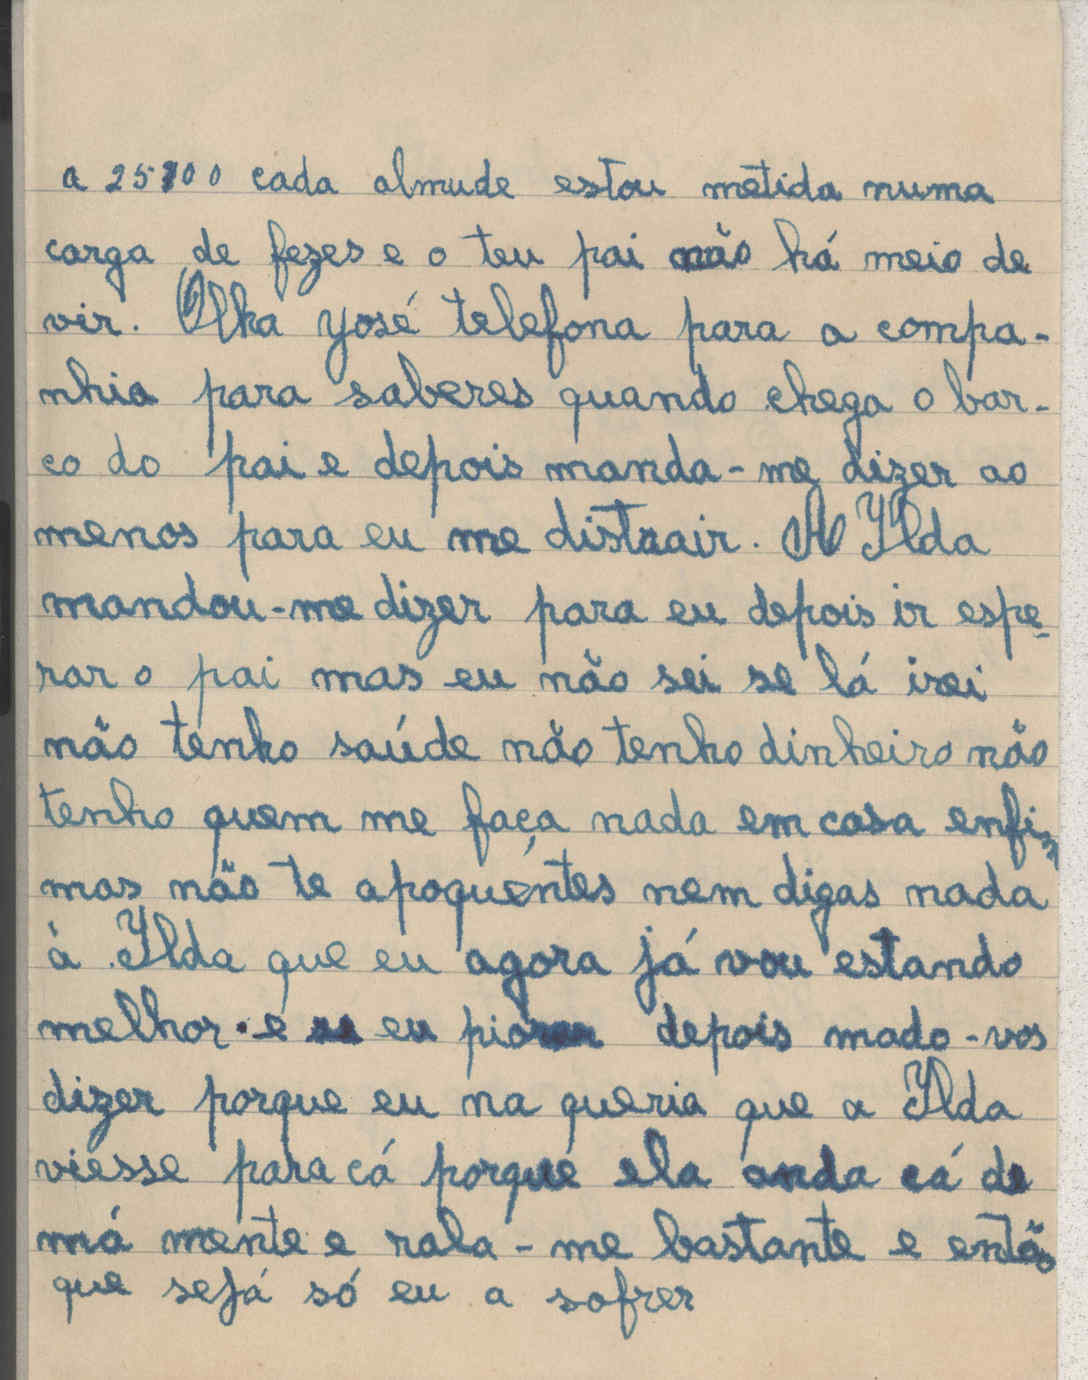 a 25$00 cada almude estou metida numa
carga de fezes e o teu pai não há meio de
vir. Olha yosé telefona para a compa-
nhia para saberes quando chega o bar-
co do pai e depois manda-me dizer ao
menos para eu me distrair. A Ylda
mandou-me dizer para eu depois ir espe-
rar o pai mas eu não sei se lá irei
não tenho saúde não tenho dinheiro não
tenho quem me faça nada em casa enfim
mas não te apoquéntes nem digas nada
à Ylda que eu agora já vou estando
melhor. e se eu piorar depois mado-vos
dizer porque eu na queria que a Ylda
viesse para cá porque ela anda cá de
má mente e rala-me bastante e então
que sejá só eu a sofrer